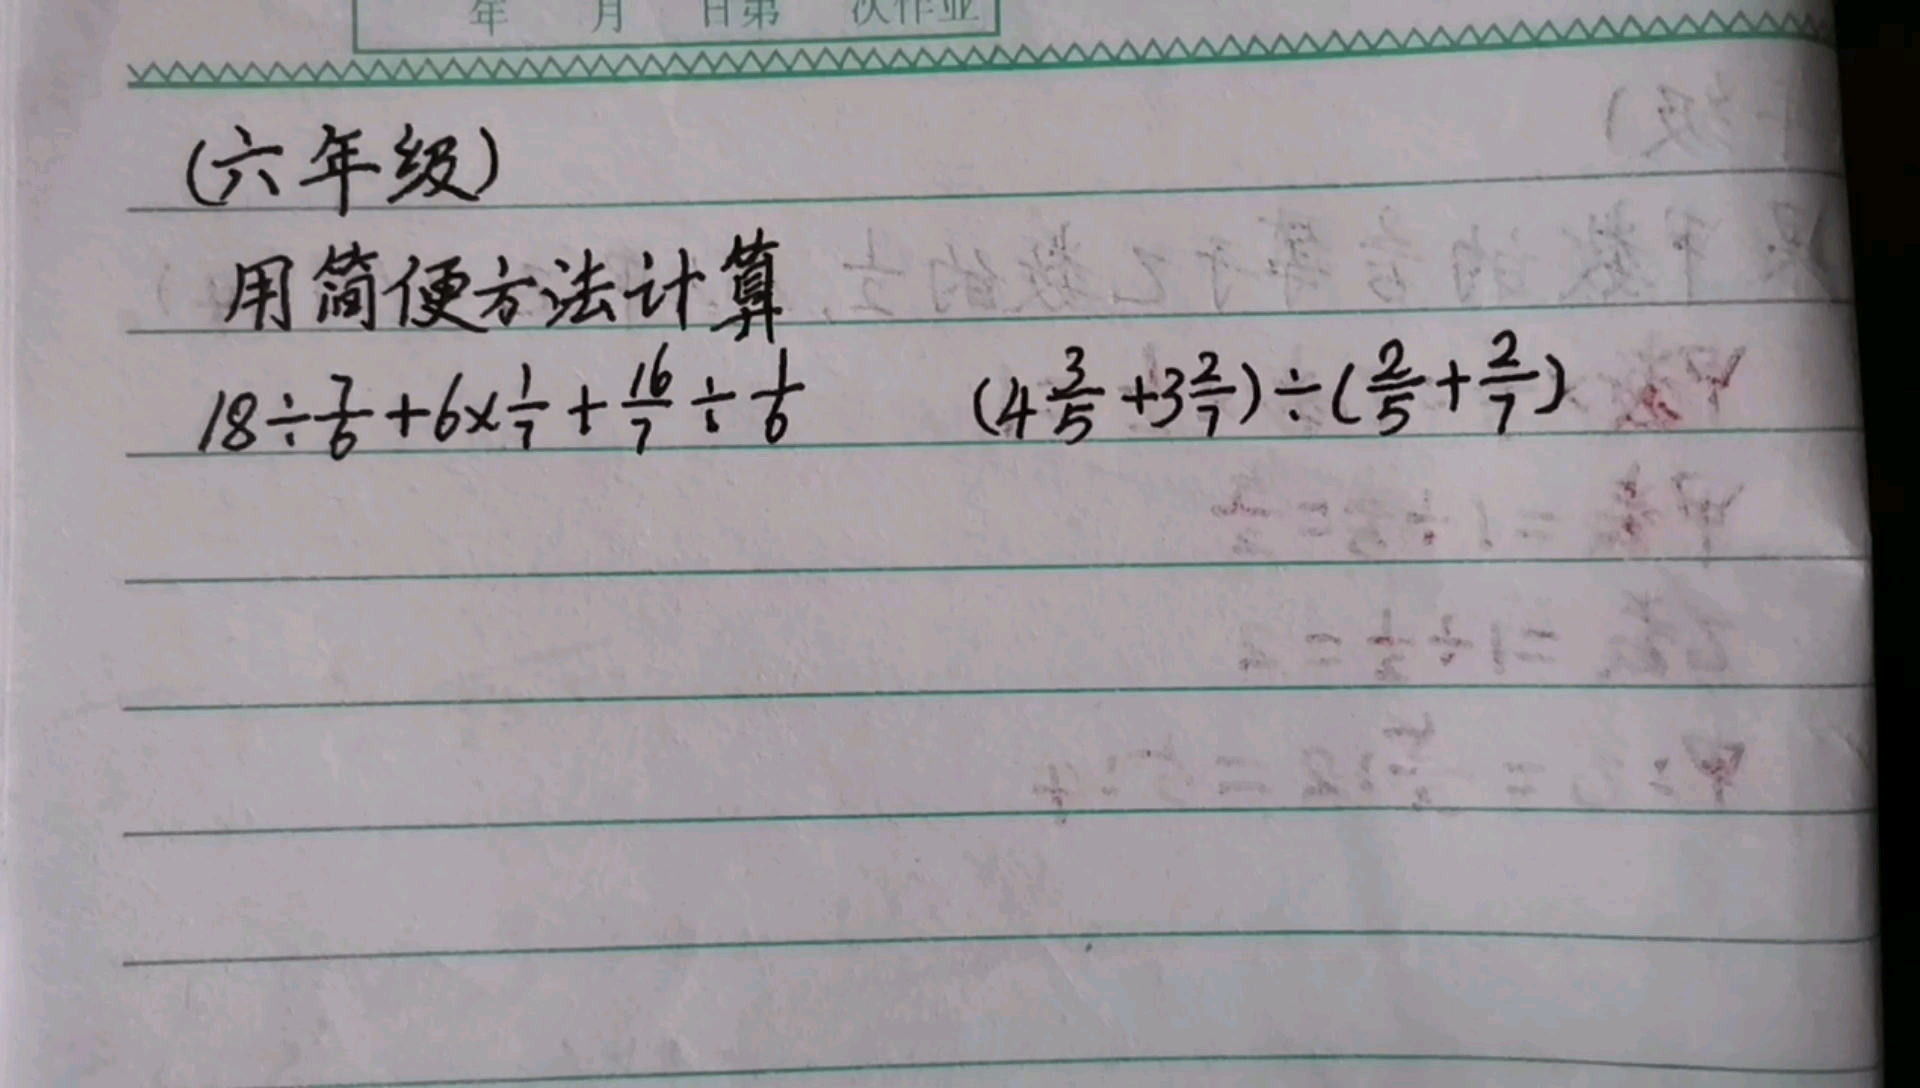 年 月 日第 次作业
(六年级)
用简便方法计算
18÷7/6+6×1/7+16/7÷1/6 (4 3/5+3 2/7)÷(2/5+2/7)